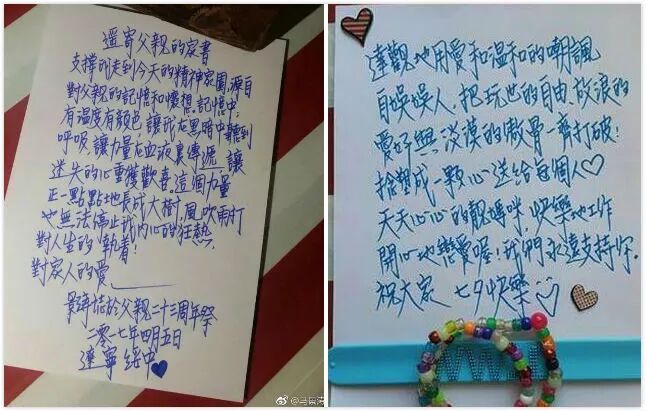 遥寄父親的家書
支撐我走到今天的精神家園,源自
對父親的記憶和懷想.記憶中,
有溫度有顏色讓我在黑暗中聽到
呼吸,讓力量在血液裏傳遞,讓
迷失的心重獲歡喜.這個力量
正一點點地長成大樹,風吹雨打
也無法停止我內心的狂熱,
對人生的執着!
對家人的愛
於父親二十三周年祭
二零一七年四月五日
遼寧綏中
達觀地用愛和溫和的嘲諷
自娛娛人.把玩世的自由.放浪的
愛好與淡漠的傲骨一齊打破!
捨塑成一顆心送給每個人
天天心心的靚媽咪.快樂地工作
開心地戀愛喔!我們永遠支持你.
祝大家 七夕快樂